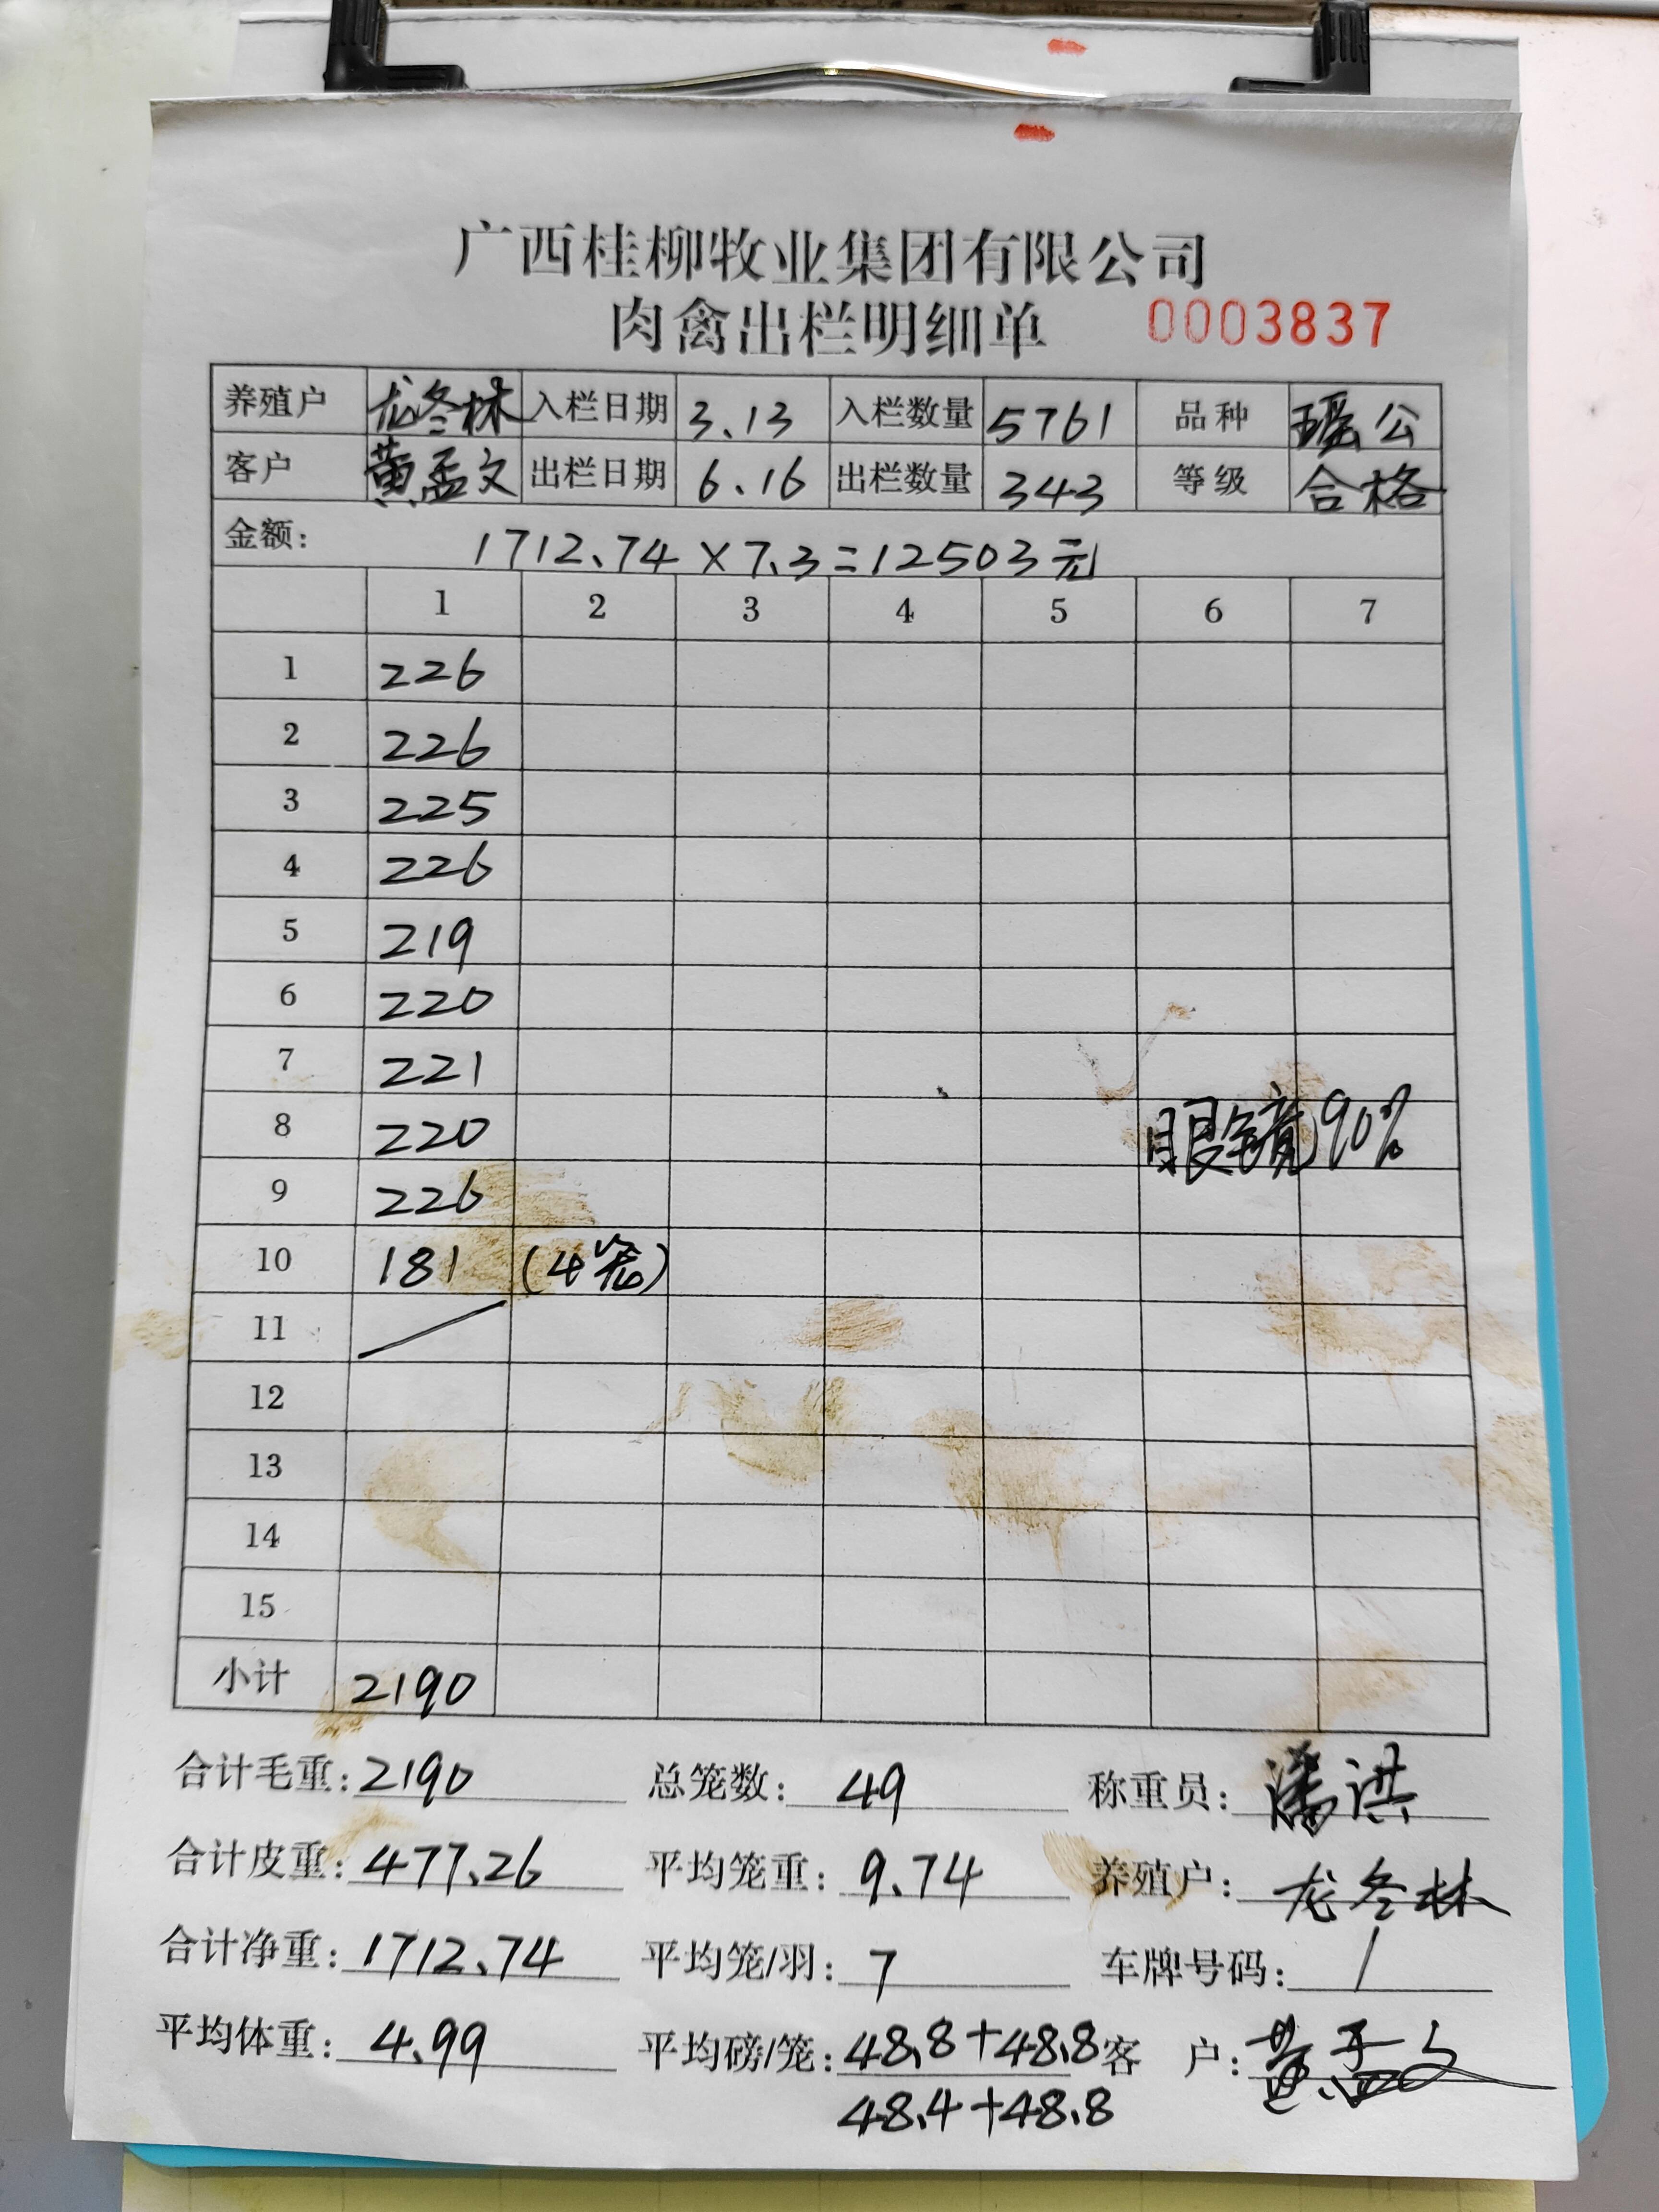 广西桂柳牧业集团有限公司
肉禽出栏明细单 0003837
养殖户 龙冬林 入栏日期 3.13 入栏数量 5761 品种 瑶公
客户 黄孟文 出栏日期 6.16 出栏数量 343 等级 合格
金额: 1712.74×7.3=12503元
1 2 3 4 5 6 7
1 226
2 226
3 225
4 226
5 219
6 220
7 221
8 220 眼镜90%
9 226
10 181 (4笼)
11
12
13
14
15
小计 2190
合计毛重:2190 总笼数: 49 称重员: 潘洪
合计皮重:477.26 平均笼重: 9.74 养殖户: 龙冬林
合计净重:1712.74 平均笼/羽: 7 车牌号码: /
平均体重: 4.99 平均磅/笼:48.8+48.8 客 户:黄孟文
48.4+48.8